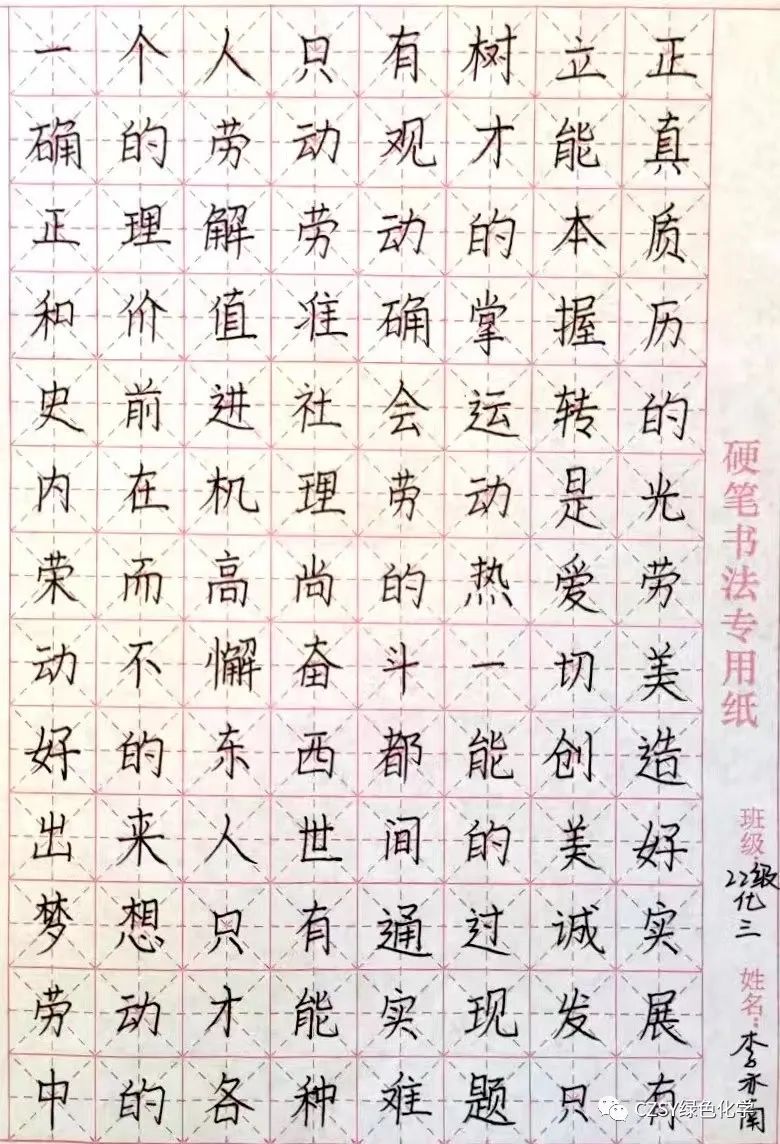 一个人只有树立正
确的劳动观才能真
正理解劳动的本质
和价值准确掌握历
史前进社会运转的
内在机理劳动是光
荣而高尚的热爱劳
动不懈奋斗一切美
好的东西都能创造
出来人世间的美好
梦想只有通过诚实
劳动才能实现发展
中的各种难题只有
硬笔书法专用纸
班级:22级化三
姓名:李亦南
CZSY绿色化学